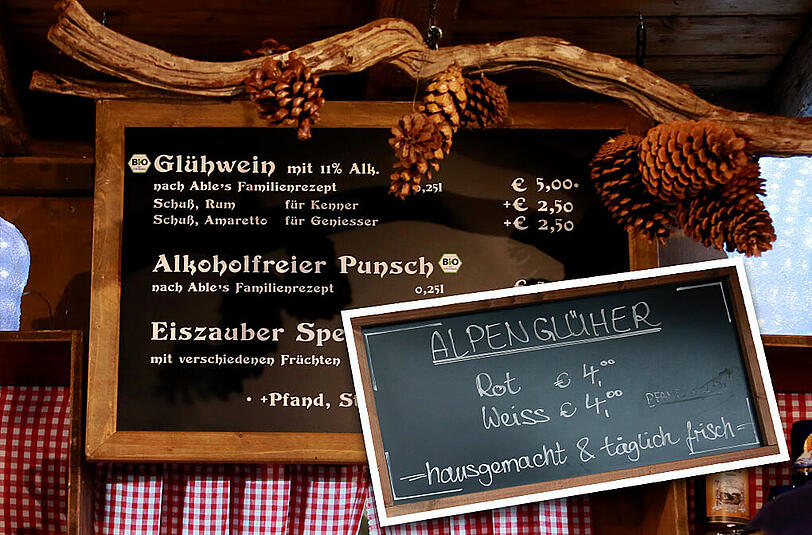 BIO Glühwein mit 11% Alk.
nach Able's Familienrezept 0,25l € 5,00.
Schuß, Rum für Kenner +€ 2,50
Schuß, Amaretto für Geniesser +€ 2,50
Alkoholfreier Punsch BIO
nach Able's Familienrezept 0,25l €
Eiszauber
mit verschiedenen Früchten
• +Pfand,
ALPENGLÜHER
Rot € 4,00
Weiss € 4,00
hausgemacht & täglich frisch